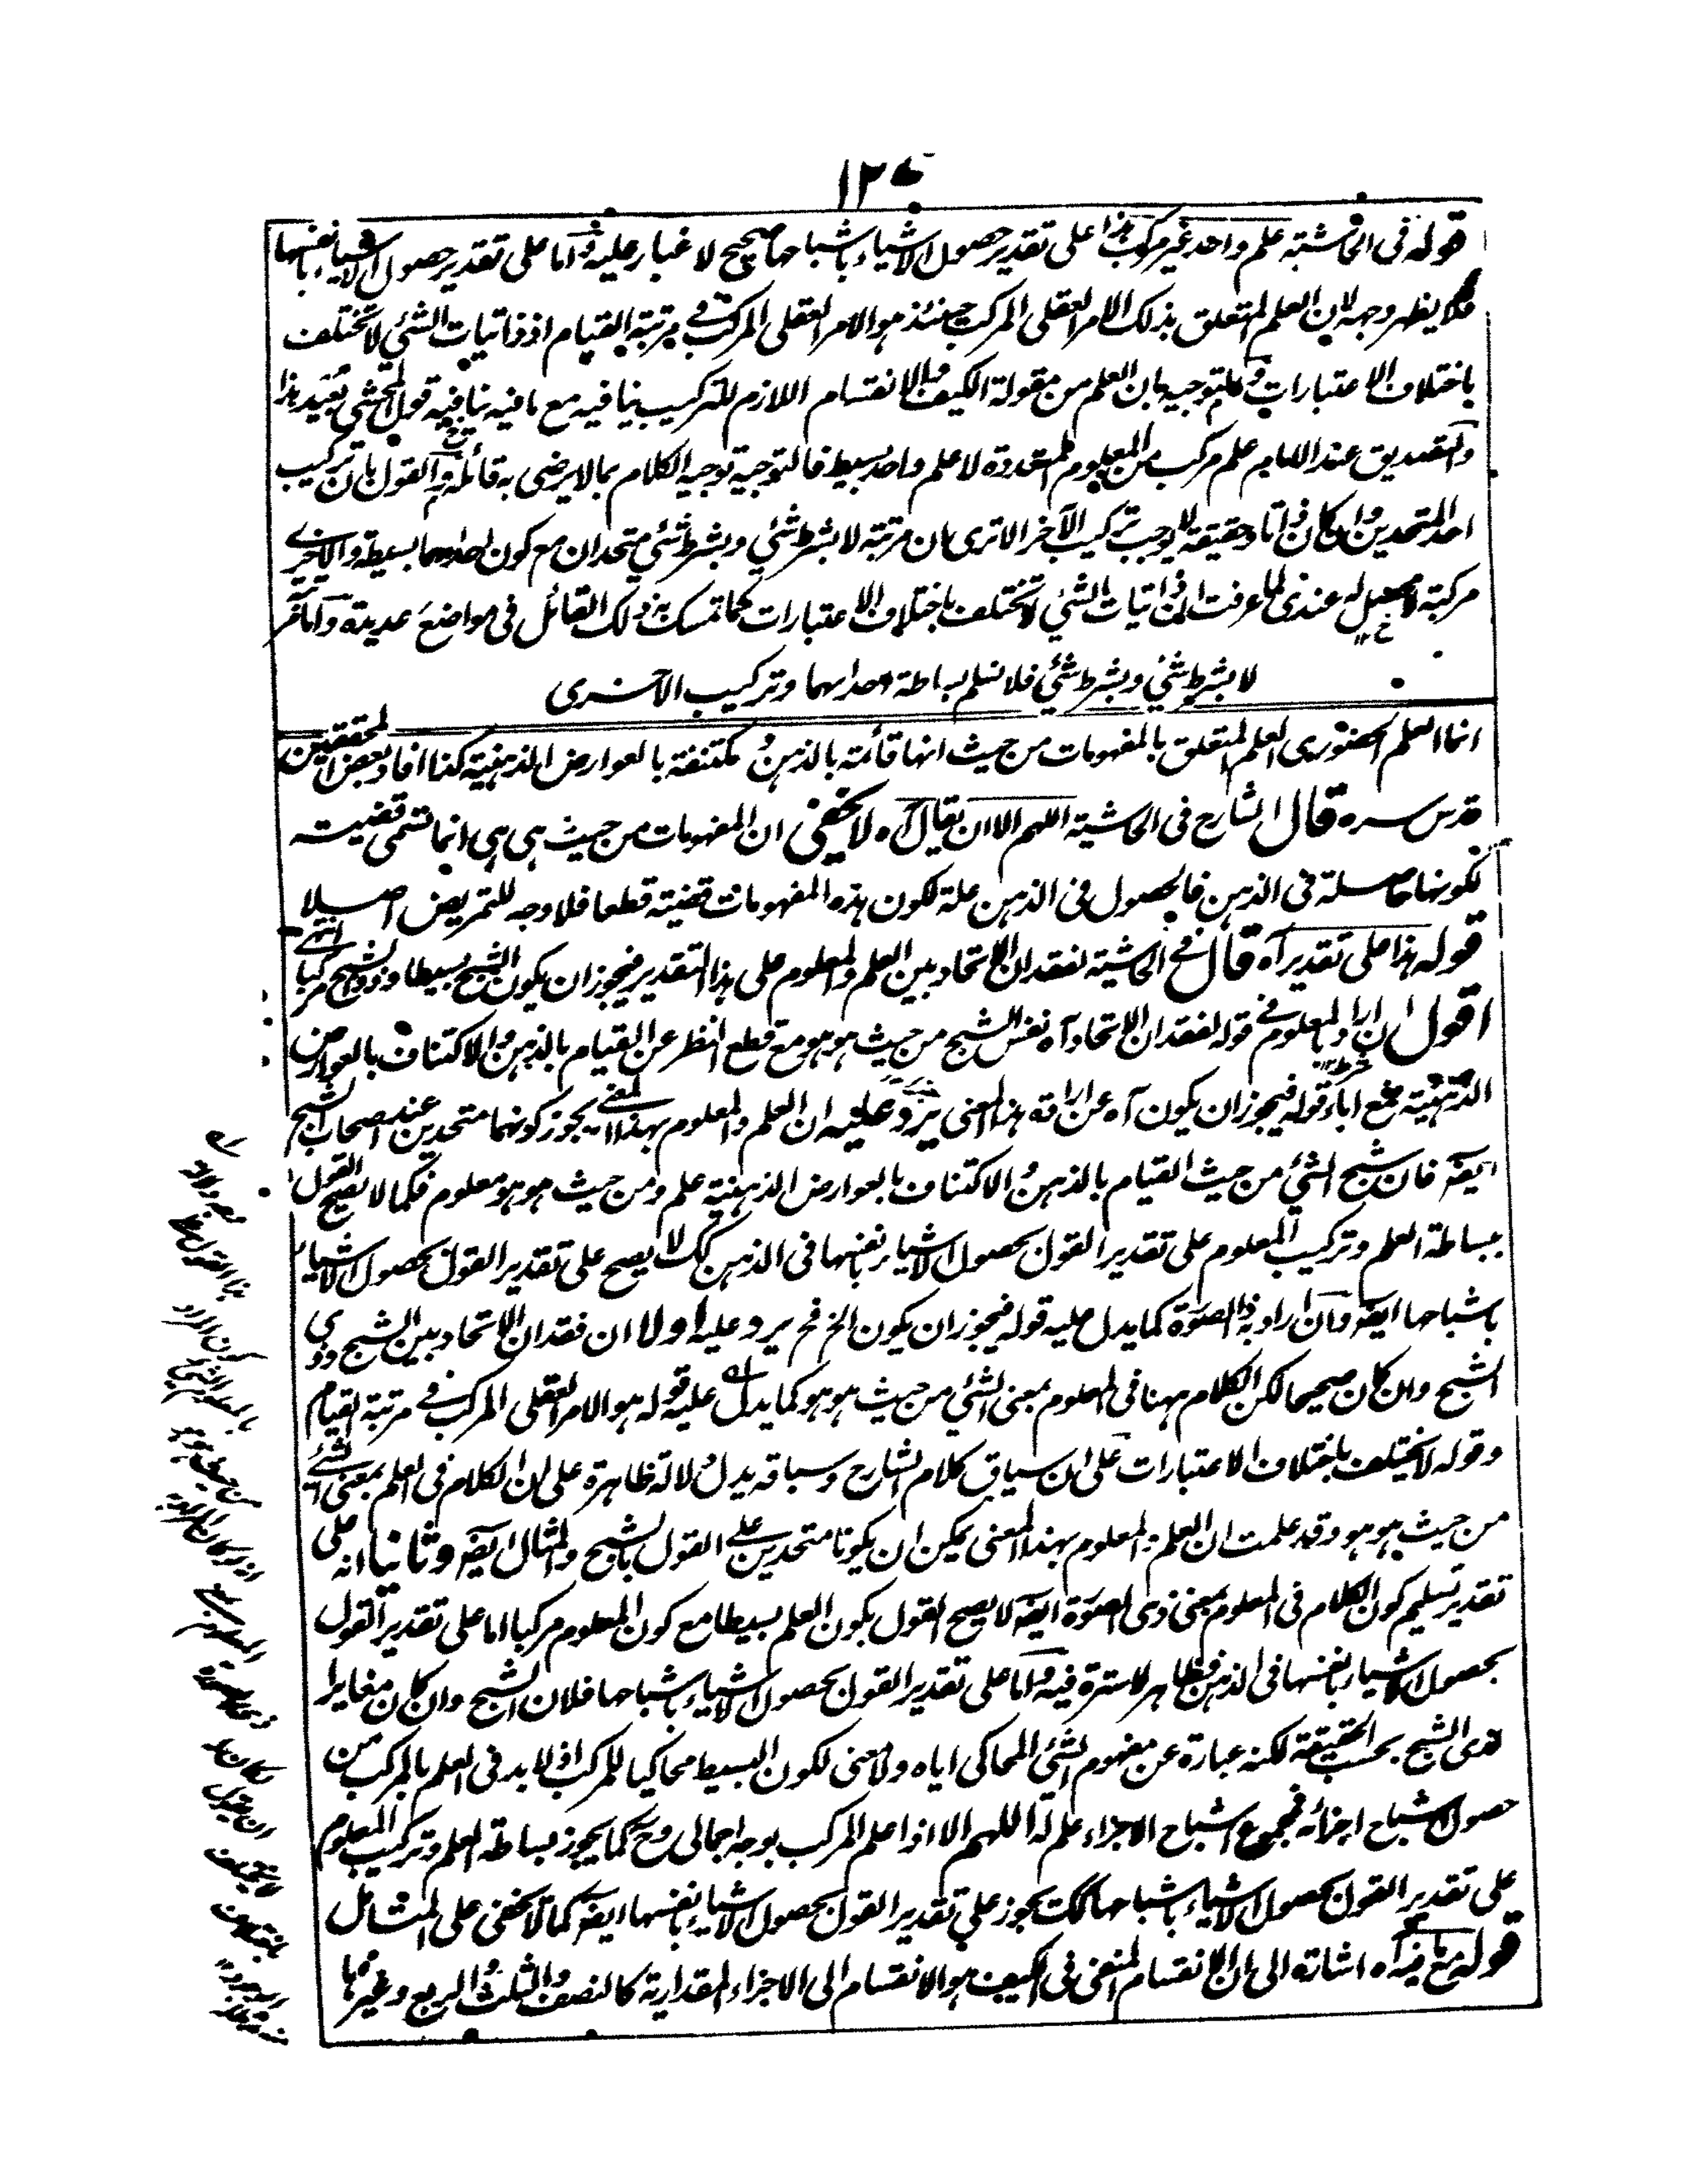 قوله فى الحاشية علم واحد غير مركب هذا على تقدير حصول الاشياء باشباحها صحيح لا غبار عليه واما على تقدير حصول الاشياء بانفسها
فلا يظهر وجهه لان العلم المتعلق بذلك الامر العقلى المركب حينئذ هو الامر العقلى المركب فى مرتبة القيام اذ ذاتيات الشئ لا تختلف
باختلاف الاعتبارات وتوجيهه بان العلم من مقولة الكيف والانقسام اللازم للتركيب ينافيه مع ما فيه ينافيه قول المحشى بعيد هذا
والتصديق عند الامام علم مركب من العلوم المتعددة لا علم واحد بسيط فالتوجيه توجيه الكلام بما لا يرضى به قائله والقول بان تركيب
احد المتحدين وان كان ذاتا وحقيقة لا يوجب تركيب الآخر الا ترى ان مرتبة لا بشرط شئ وبشرط شئ متحدان مع كون احداهما بسيطة والاخرى
مركبة لا محصل له عندى لما عرفت ان ذاتيات الشئ لا تختلف باختلاف الاعتبارات كما تمسك به ذلك القائل فى مواضع عديدة واما مرتبة
لا بشرط شئ وبشرط شئ فلا نسلم بساطة احداهما وتركيب الاخرى
انما العلم الحضورى العلم المتعلق بالمفهومات من حيث انها قائمة بالذهن ومكتنفة بالعوارض الذهنية كذا افاد بعض المحققين
قدس سره قال الشارح فى الحاشية اللهم الا ان يقال آه لا يخفى ان المفهومات من حيث هى هى انما تسمى قضية
لكونها حاصلة فى الذهن فالحصول فى الذهن علة لكون هذه المفهومات قضية قطعا فلا وجه للتمريض اصلا
قوله هذا على تقدير آه قال فى الحاشية لفقدان الاتحاد بين العلم والمعلوم على هذا التقدير فيجوز ان يكون الشبح بسيطا وذو الشبح مركبا انتهى
اقول ان اراد بالمعلوم فى قوله لفقدان الاتحاد آه نفس الشبح من حيث هو هو مع قطع النظر عن القيام بالذهن والاكتناف بالعوارض
الذهنية فمع اباء قوله فيجوز ان يكون آه عن ارادة هذا المعنى يرد عليه ان العلم والمعلوم بهذا المعنى يجوز كونهما متحدين عند اصحاب الشبح
ايضا فان شبح الشئ من حيث القيام بالذهن والاكتناف بالعوارض الذهنية علم ومن حيث هو هو معلوم فكما لا يصح القول
ببساطة العلم وتركيب المعلوم على تقدير القول بحصول الاشياء بانفسها فى الذهن كك لا يصح على تقدير القول بحصول الاشياء
باشباحها ايضا وان اراد به ذا الصورة كما يدل عليه قوله فيجوز ان يكون الخ فح يرد عليه اولا ان فقدان الاتحاد بين الشبح وذى
الشبح وان كان صحيحا لكن الكلام ههنا فى المعلوم بمعنى الشئ من حيث هو هو كما يدل عليه قوله هو الامر العقلى المركب فى مرتبة القيام
وقوله لا يختلف باختلاف الاعتبارات على ان سياق كلام الشارح وسباقه يدل دلالة ظاهرة على ان الكلام فى العلم بمعنى الشئ
من حيث هو هو وقد علمت ان العلم والمعلوم بهذا المعنى يمكن ان يكونا متحدين على القول بالشبح والمثال ايضا وثانيا انه على
تقدير تسليم كون الكلام فى المعلوم بمعنى ذى الصورة ايضا لا يصح القول بكون العلم بسيطا مع كون المعلوم مركبا اما على تقدير القول
بحصول الاشياء بانفسها فى الذهن فظاهر لا سترة فيه واما على تقدير القول بحصول الاشياء باشباحها فلان الشبح وان كان مغايرا
لذى الشبح بحسب الحقيقة لكنه عبارة عن مفهوم الشئ المحاكى اياه ولا معنى لكون البسيط محاكيا للمركب اذ لا بد فى العلم بالمركب من
حصول اشباح اجزائه فمجموع اشباح الاجزاء علم له اللهم الا اذا علم المركب بوجه اجمالى وح كما يجوز بساطة العلم وتركيب المعلوم
على تقدير القول بحصول الاشياء باشباحها كك يجوز على تقدير القول بحصول الاشياء بانفسها ايضا كما لا يخفى على المتامل
قوله مع ما فيه آه اشارة الى ان الانقسام المنفى فى الكيف هو الانقسام الى الاجزاء المقدارية كالنصف والثلث والربع وغيرها